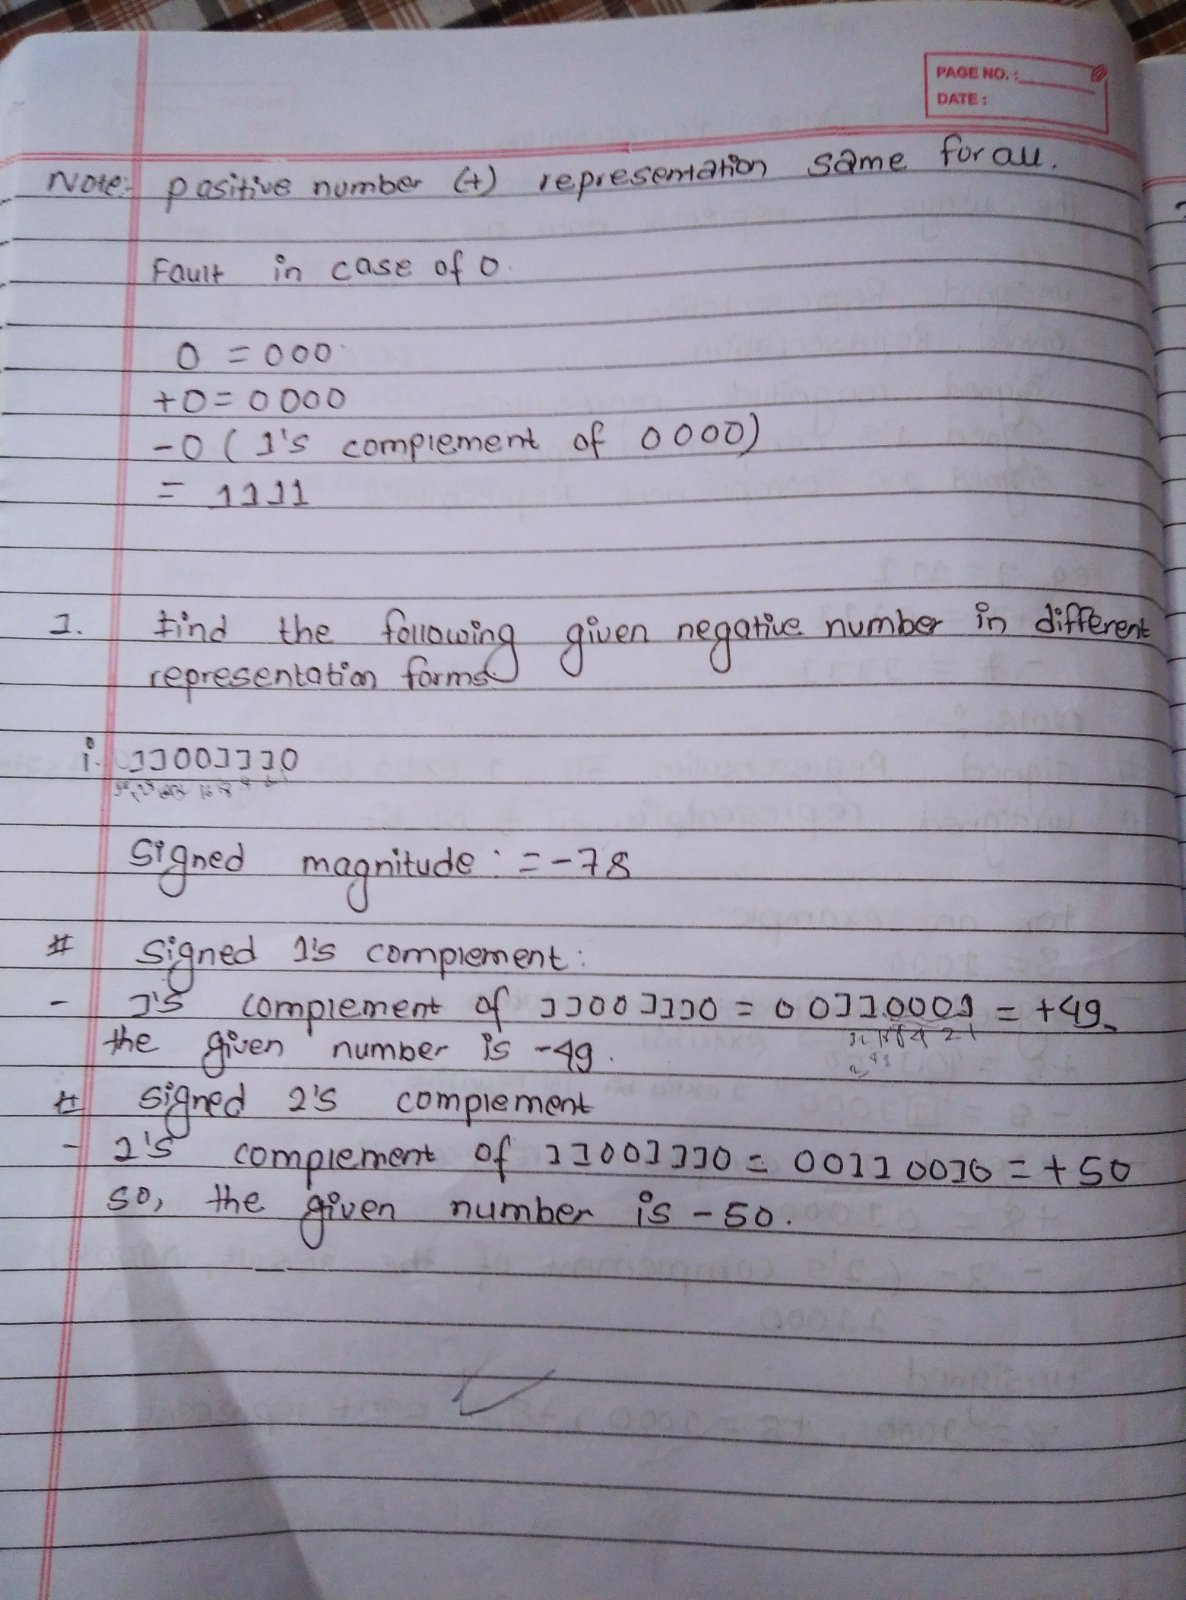 PAGE NO. :
DATE :
Note: positive number (+) representation same for all.
Fault in case of 0.
0 = 000
+0 = 0000
-0 ( 1's complement of 0000)
= 1111
1. find the following given negative number in different
representation forms
i. 11001110
Signed magnitude : = -78
# Signed 1's complement:
- 1's complement of 11001110 = 00110001 = +49
32 16 8 4 2 1
the given number is -49.
# Signed 2's complement
- 2's complement of 11001110 = 00110010 = +50
so, the given number is -50.